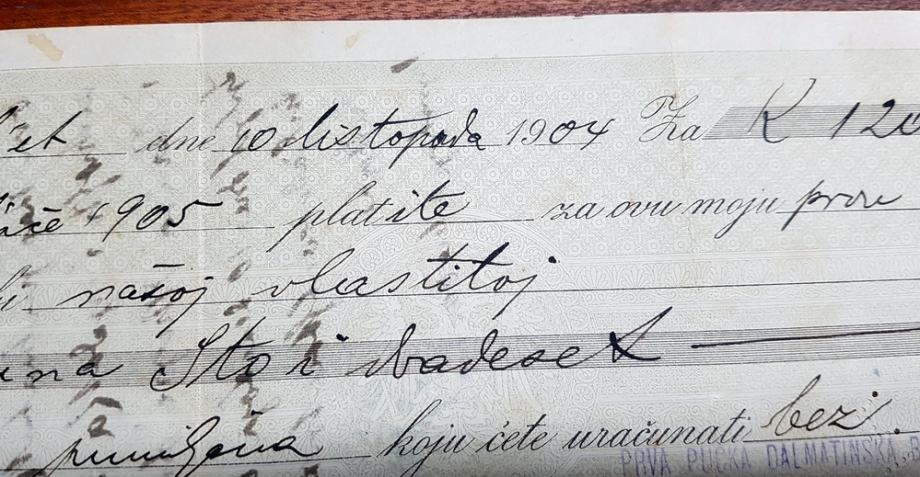 dne 10 listopada 1904 Za K 120
1905 platite za ovu moju prvu
našoj vlastitoj
Sto i dvadeset
koju ćete uračunati bez
PRVA PUČKA DALMATINSKA